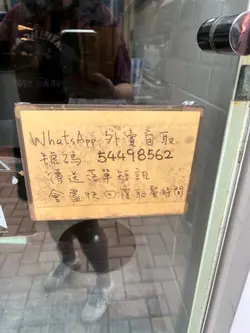 WhatsApp 外賣自取
號碼 54498562
傳送菜單短訊
會盡快回覆拾餐時間